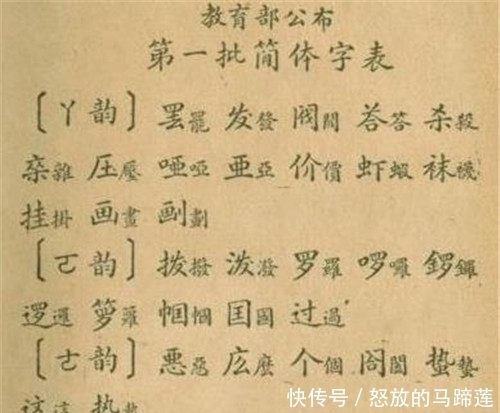 教育部公布
第一批简体字表
〔ㄚ韵〕罢罷 发發 阀閥 荅答 杀殺
杂雜 圧壓 唖啞 亜亞 价價 虾蝦 袜襪
挂掛 画畫 㓰劃
〔ㄛ韵〕拨撥 泼潑 罗羅 啰囉 锣鑼
逻邏 箩籮 帼幗 囯國 过過
〔ㄜ韵〕恶惡 庅麼 个個 蛰蟄
这這 热
快传号/怒放的马蹄莲